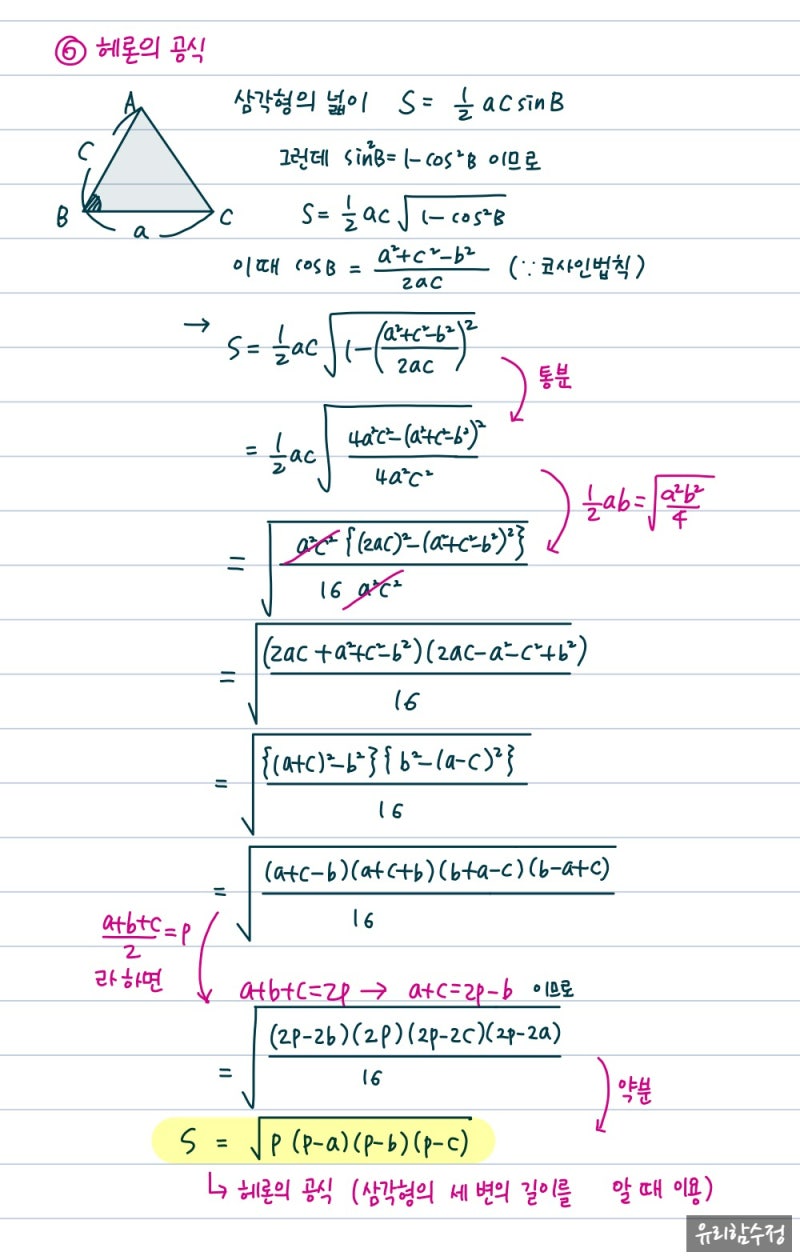 ⑥ 헤론의 공식
A
C
B
a
C
삼각형의 넓이 S = 1/2 ac sinB
그런데 sin²B = 1 - cos²B 이므로
S = 1/2 ac √(1 - cos²B)
이때 cosB = (a²+c²-b²)/(2ac) (∵ 코사인법칙)
→ S = 1/2 ac √(1 - ((a²+c²-b²)/(2ac))²)
통분
= 1/2 ac √((4a²c² - (a²+c²-b²)²)/(4a²c²))
1/2 ab = √(a²b²/4)
= √(a²c²{(2ac)² - (a²+c²-b²)²}/(16 a²c²))
= √((2ac+a²+c²-b²)(2ac-a²-c²+b²)/16)
= √({(a+c)²-b²}{b²-(a-c)²}/16)
= √((a+c-b)(a+c+b)(b+a-c)(b-a+c)/16)
(a+b+c)/2 = p
라 하면
a+b+c=2p → a+c=2p-b 이므로
= √((2p-2b)(2p)(2p-2c)(2p-2a)/16)
약분
S = √(p(p-a)(p-b)(p-c))
↳ 헤론의 공식 (삼각형의 세 변의 길이를 알 때 이용)
유리함수정